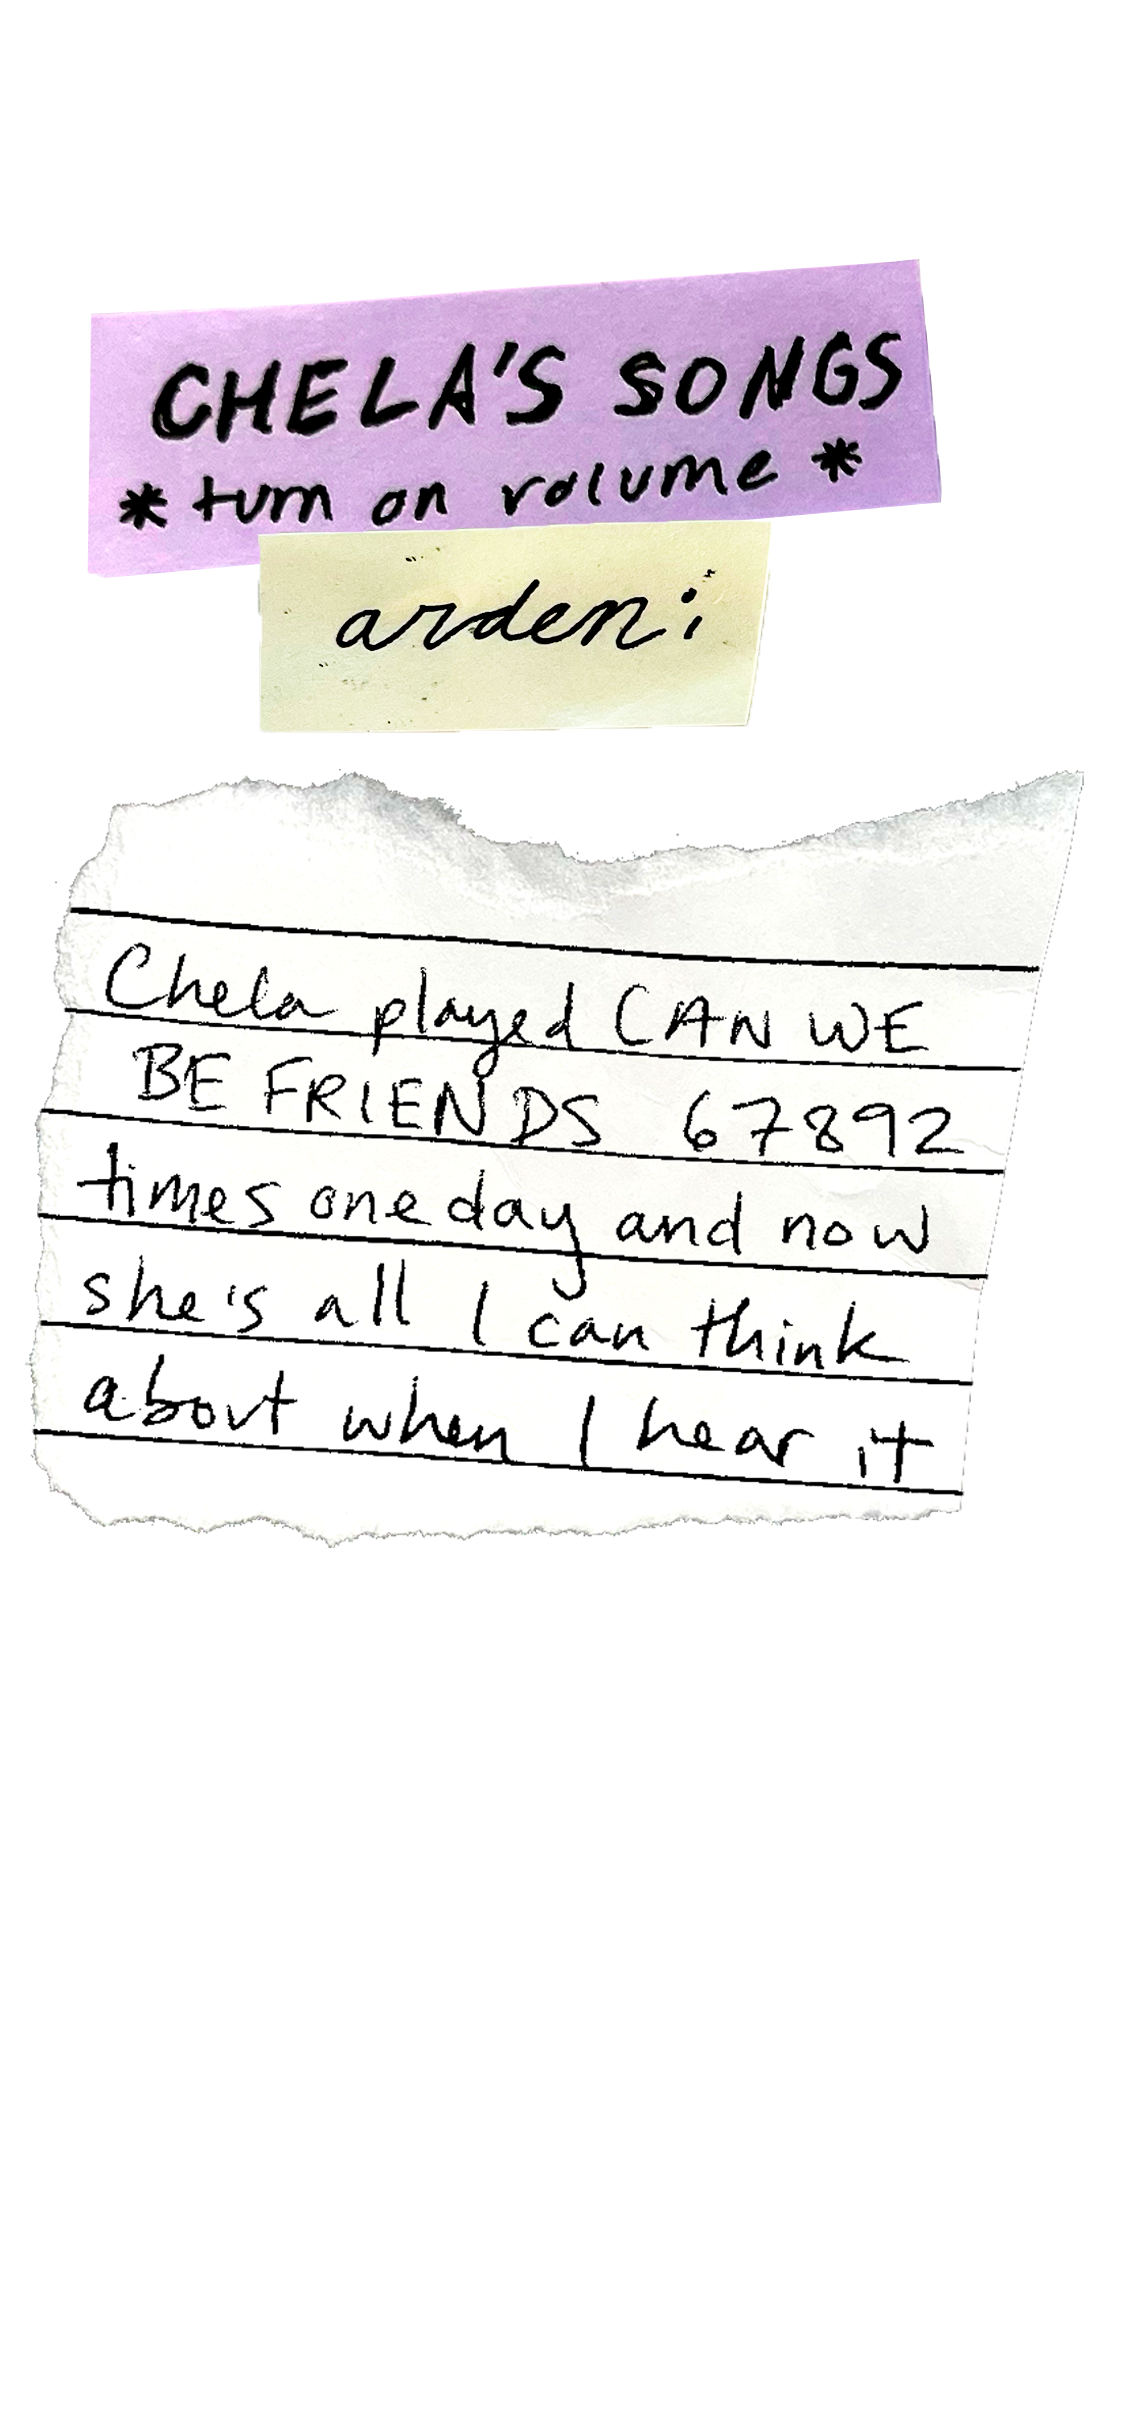 CHELA'S SONGS
* turn on volume *
arden:
Chela played CAN WE
BE FRIENDS 67892
times one day and now
she's all I can think
about when I hear it